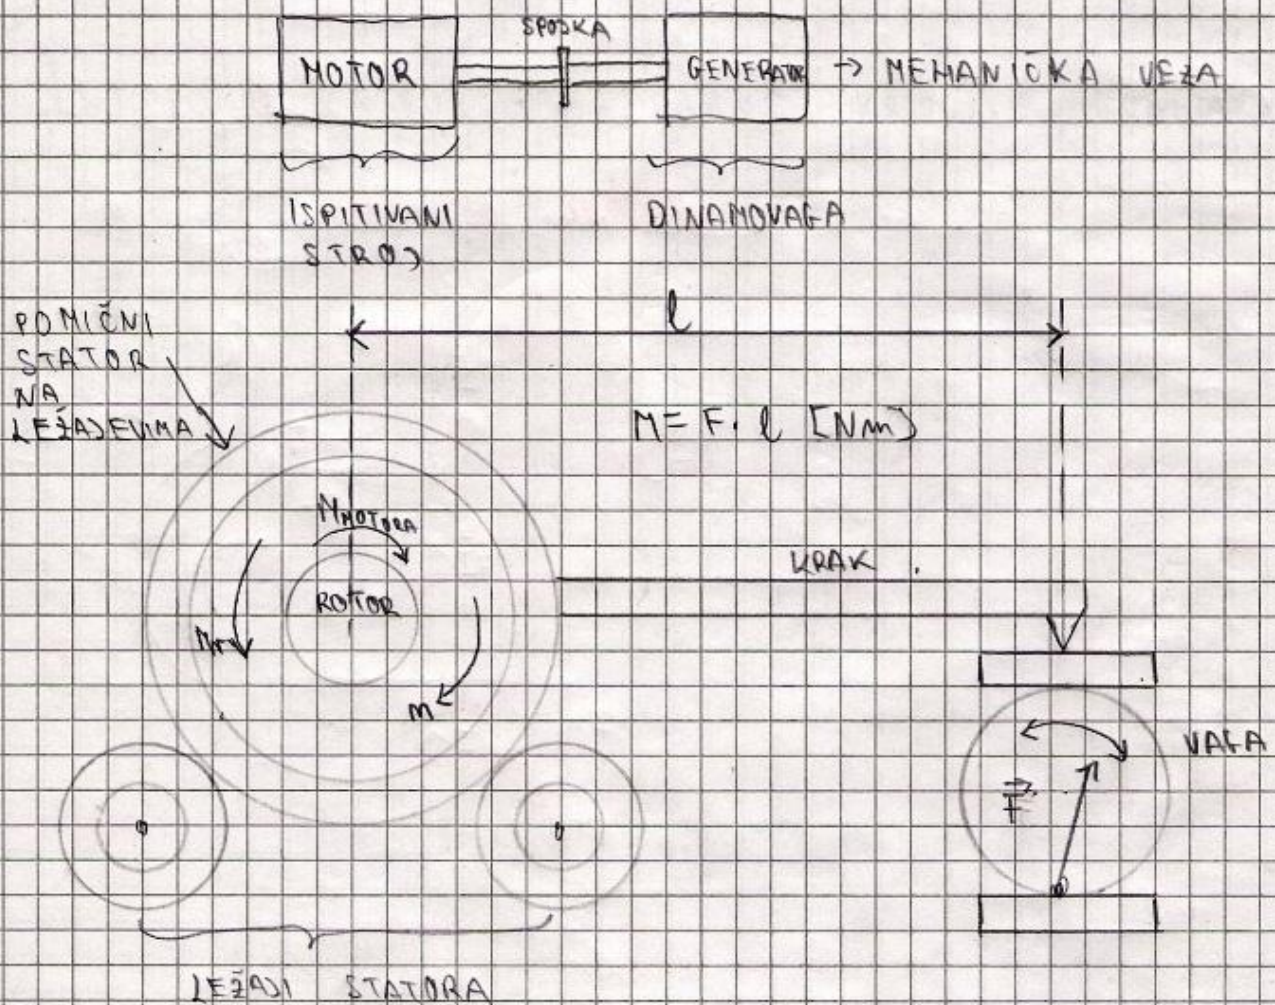 SPOJKA
MOTOR
GENERATOR → MEHANIČKA VEZA
ISPITIVANI
STROJ
DINAMOVAGA
l
POMIČNI
STATOR
NA
LEŽAJEVIMA
M = F · l [Nm]
M MOTORA
KRAK
ROTOR
M
VAGA
F
LEŽAJI STATORA